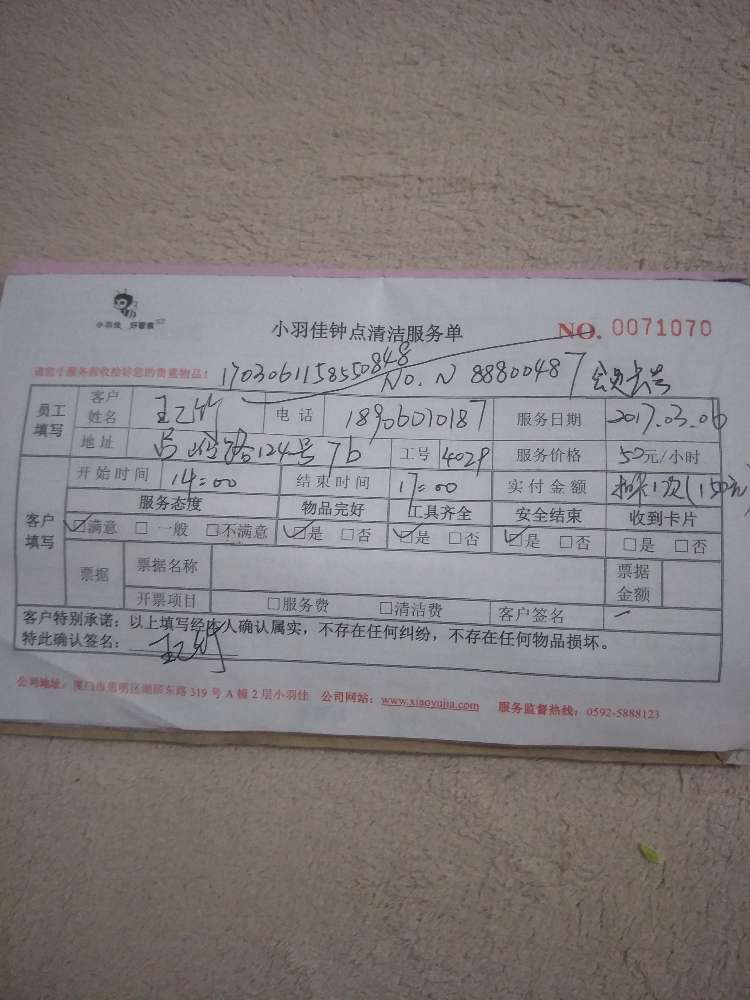 小羽佳 好管家
小羽佳钟点清洁服务单 NO. 0071070
请您于服务前收拾好您的贵重物品! 1703061158550848
No. N 88800487 会员卡号
员工填写 客户姓名 电话 18906010187 服务日期 2017.03.06
地址 路124号7b 工号 4029 服务价格 50元/小时
客户填写 开始时间 14:00 结束时间 17:00 实付金额 扣卡1次(150元)
服务态度 物品完好 工具齐全 安全结束 收到卡片
☑满意 □一般 □不满意 ☑是 □否 ☑是 □否 ☑是 □否 □是 □否
票据 票据名称 票据金额
开票项目 □服务费 □清洁费 客户签名
客户特别承诺:以上填写经本人确认属实,不存在任何纠纷,不存在任何物品损坏。
特此确认签名:
公司地址:厦门市思明区湖滨东路 319 号 A 幢 2 层小羽佳 公司网站:www.xiaoyujia.com 服务监督热线:0592-5888123